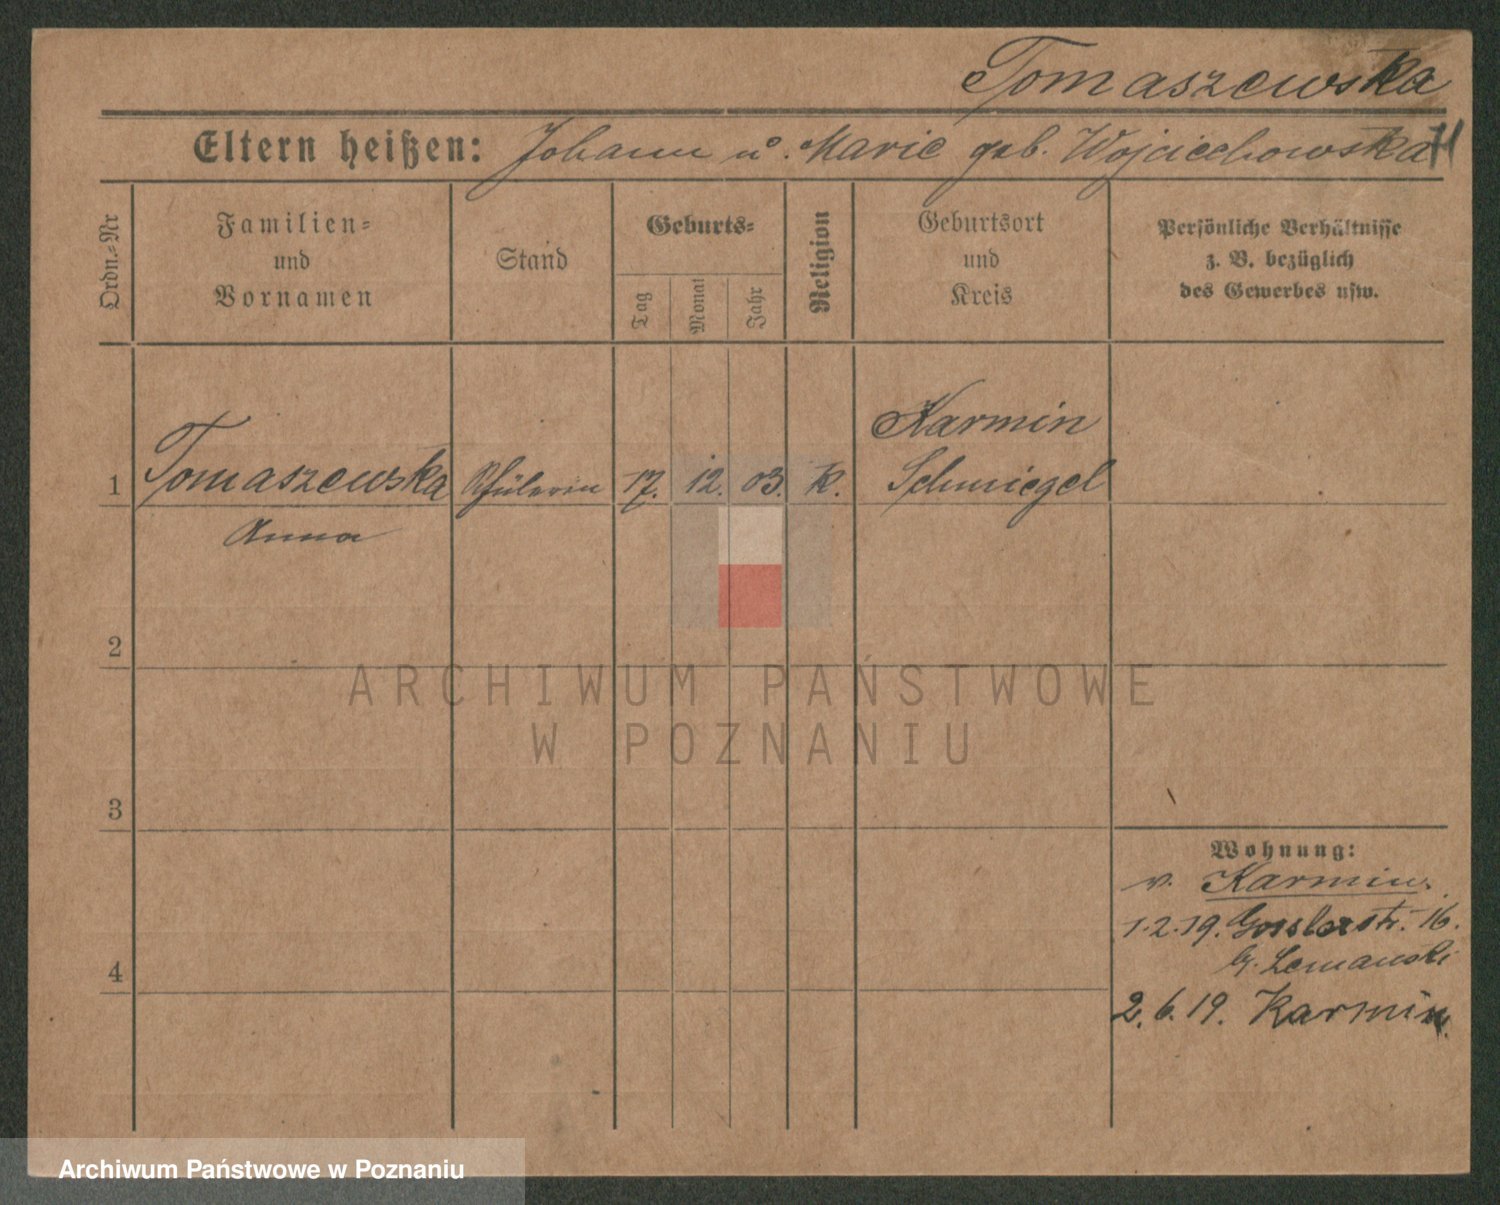 Tomaszewska
Eltern heißen: Johann u. Marie geb. Wojciechowska
Ordn.-Nr
Familien-
und
Vornamen
Stand
Geburts-
Tag
Monat
Jahr
Religion
Geburtsort
und
Kreis
Persönliche Verhältnisse
z. B. bezüglich
des Gewerbes usw.
1 Tomaszewska Schülerin 17. 12. 03. K. Karmin
Schmiegel
Anna
2
3
4
Wohnung:
v. Karmin.
1.2.19. Gosslerstr. 16.
b. Lemanski
2.6.19. Karmin.
ARCHIWUM PAŃSTWOWE
W POZNANIU
Archiwum Państwowe w Poznaniu